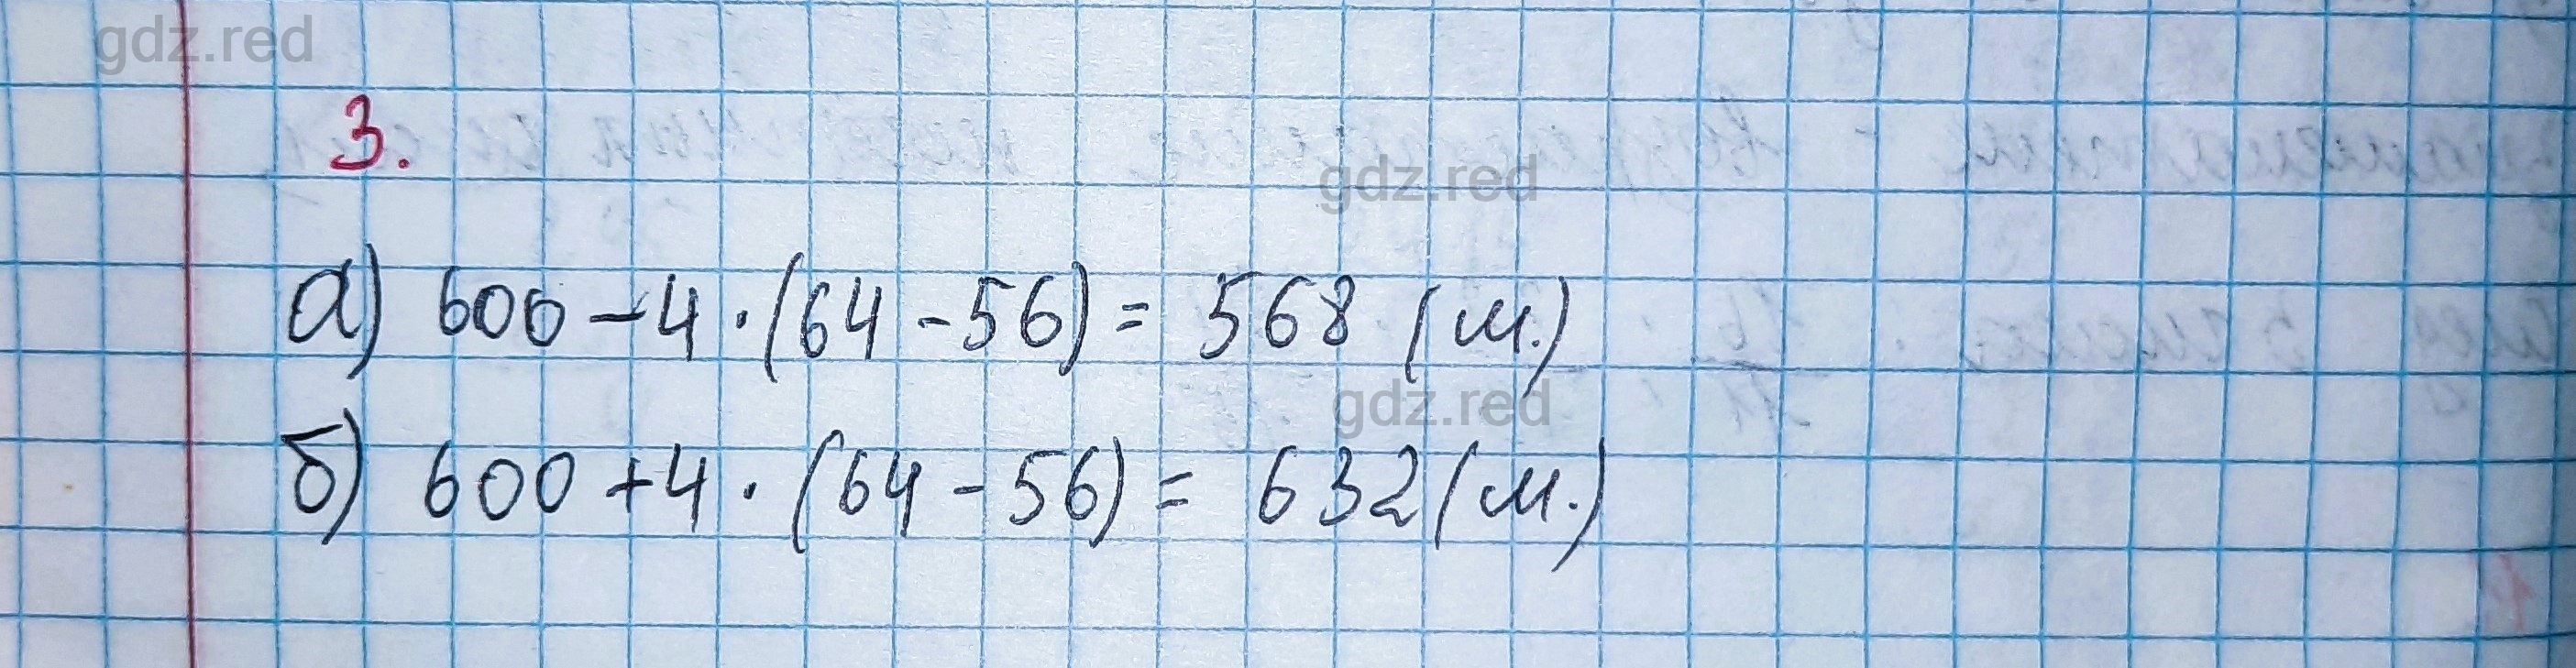 gdz.red
3.
gdz.red
а) 600 - 4 · (64 - 56) = 568 (м.)
gdz.red
б) 600 + 4 · (64 - 56) = 632 (м.)